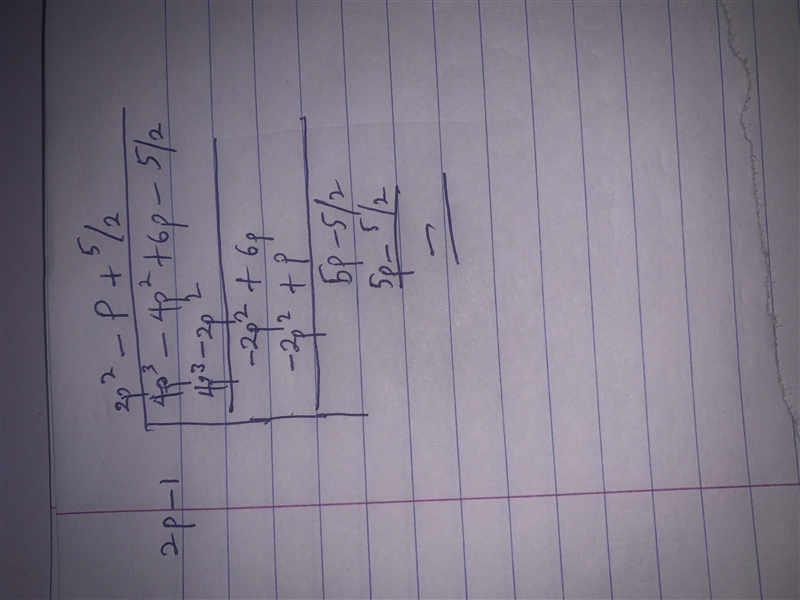 2p² - p + 5/2
2p - 1 4p³ - 4p² + 6p - 5/2
4p³ - 2p²
-2p² + 6p
-2p² + p
5p - 5/2
5p - 5/2
-